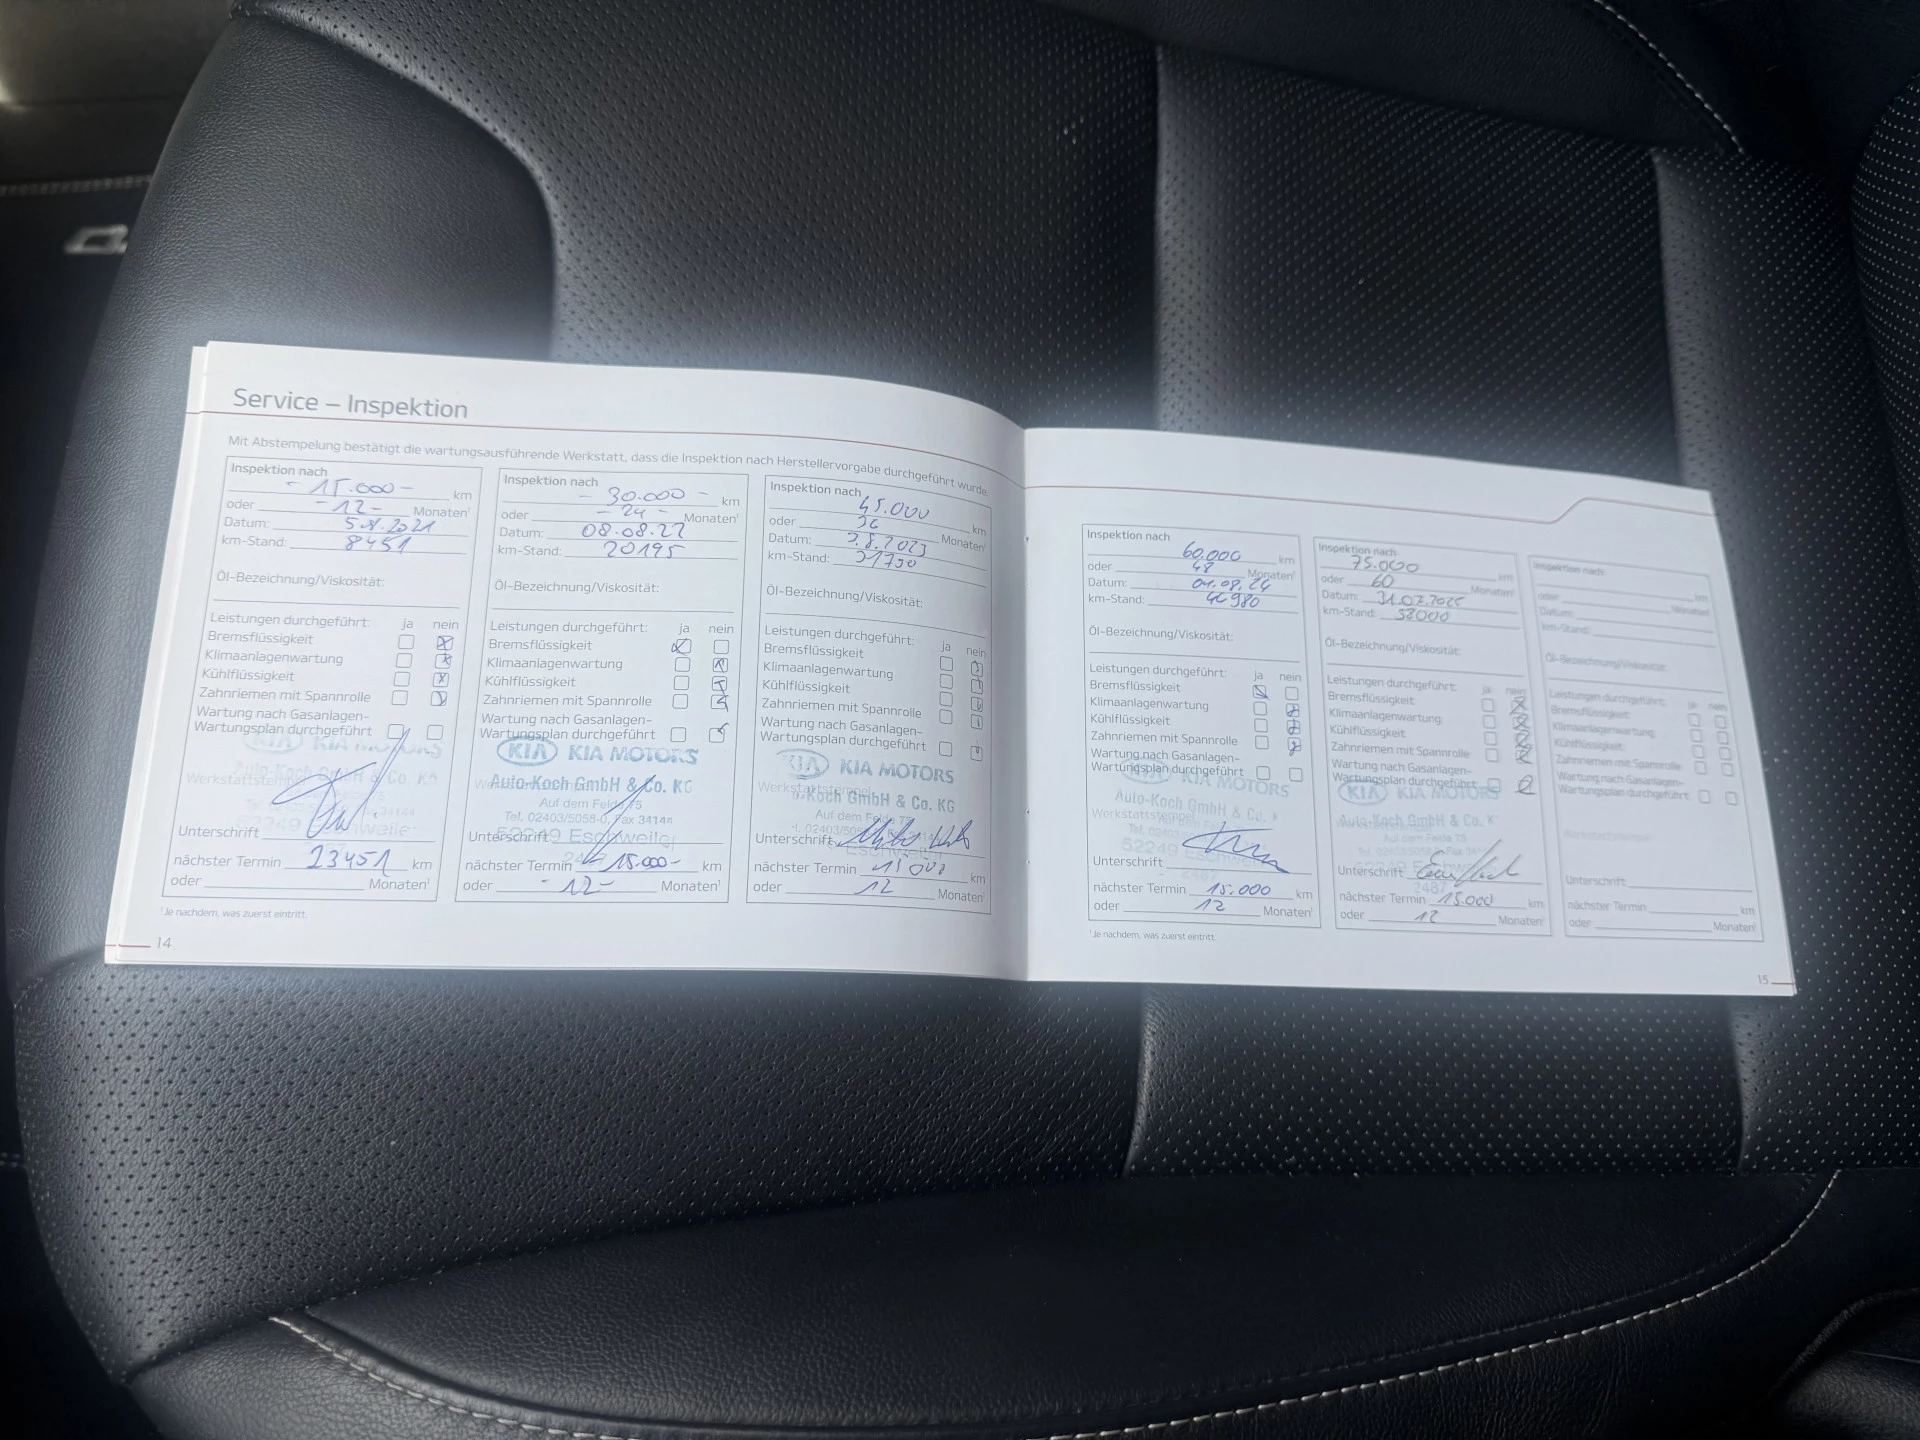 Service – Inspektion
Mit Abstempelung bestätigt die wartungsausführende Werkstatt, dass die Inspektion nach Herstellervorgabe durchgeführt wurde.
Inspektion nach
- 15.000 - km
oder - 12 - Monaten¹
Datum: 5.8.2021
km-Stand: 8451
Öl-Bezeichnung/Viskosität:
Leistungen durchgeführt: ja nein
Bremsflüssigkeit
Klimaanlagenwartung
Kühlflüssigkeit
Zahnriemen mit Spannrolle
Wartung nach Gasanlagen-
Wartungsplan durchgeführt
KIA KIA MOTORS
Auto-Koch GmbH & Co. KG
Werkstattstempel
52249 Eschweiler
Unterschrift
nächster Termin 23451 km
oder Monaten¹
¹Je nachdem, was zuerst eintritt.
14
Inspektion nach
- 30.000 - km
oder - 24 - Monaten¹
Datum: 08.08.22
km-Stand: 20195
Öl-Bezeichnung/Viskosität:
Leistungen durchgeführt: ja nein
Bremsflüssigkeit
Klimaanlagenwartung
Kühlflüssigkeit
Zahnriemen mit Spannrolle
Wartung nach Gasanlagen-
Wartungsplan durchgeführt
KIA KIA MOTORS
Auto-Koch GmbH & Co. KG
Auf dem Felde 75
Tel. 02403/5058-0, Fax 34144
Unterschrift
52249 Eschweiler
nächster Termin 15.000 - km
oder - 12 - Monaten¹
Inspektion nach
45.000 km
oder 36 Monaten¹
Datum: 2.8.2023
km-Stand: 31750
Öl-Bezeichnung/Viskosität:
Leistungen durchgeführt: ja nein
Bremsflüssigkeit
Klimaanlagenwartung
Kühlflüssigkeit
Zahnriemen mit Spannrolle
Wartung nach Gasanlagen-
Wartungsplan durchgeführt
KIA KIA MOTORS
Werkstattstempel
Koch GmbH & Co. KG
Auf dem Felde 75
Unterschrift
Eschweiler
nächster Termin 15000 km
oder 12 Monaten¹
Inspektion nach
60.000 km
oder 48 Monaten¹
Datum: 01.08.24
km-Stand: 46980
Öl-Bezeichnung/Viskosität:
Leistungen durchgeführt: ja nein
Bremsflüssigkeit
Klimaanlagenwartung
Kühlflüssigkeit
Zahnriemen mit Spannrolle
Wartung nach Gasanlagen-
Wartungsplan durchgeführt
KIA MOTORS
Auto-Koch GmbH & Co.
Werkstattstempel
52249 Eschweiler
Unterschrift
2487
nächster Termin 15.000 km
oder 12 Monaten¹
¹Je nachdem, was zuerst eintritt.
Inspektion nach
75.000 km
oder 60 Monaten¹
Datum: 31.07.2025
km-Stand: 58000
Öl-Bezeichnung/Viskosität:
Leistungen durchgeführt: ja nein
Bremsflüssigkeit
Klimaanlagenwartung
Kühlflüssigkeit
Zahnriemen mit Spannrolle
Wartung nach Gasanlagen-
Wartungsplan durchgeführt
KIA KIA MOTORS
Auto-Koch GmbH & Co.
Auf dem Felde 75
Unterschrift
2487
nächster Termin 15.000 km
oder 12 Monaten¹
Inspektion nach
km
oder Monaten¹
Datum:
km-Stand:
Öl-Bezeichnung/Viskosität:
Leistungen durchgeführt: ja nein
Bremsflüssigkeit
Klimaanlagenwartung
Kühlflüssigkeit
Zahnriemen mit Spannrolle
Wartung nach Gasanlagen-
Wartungsplan durchgeführt
Werkstattstempel
Unterschrift
nächster Termin km
oder Monaten¹
15